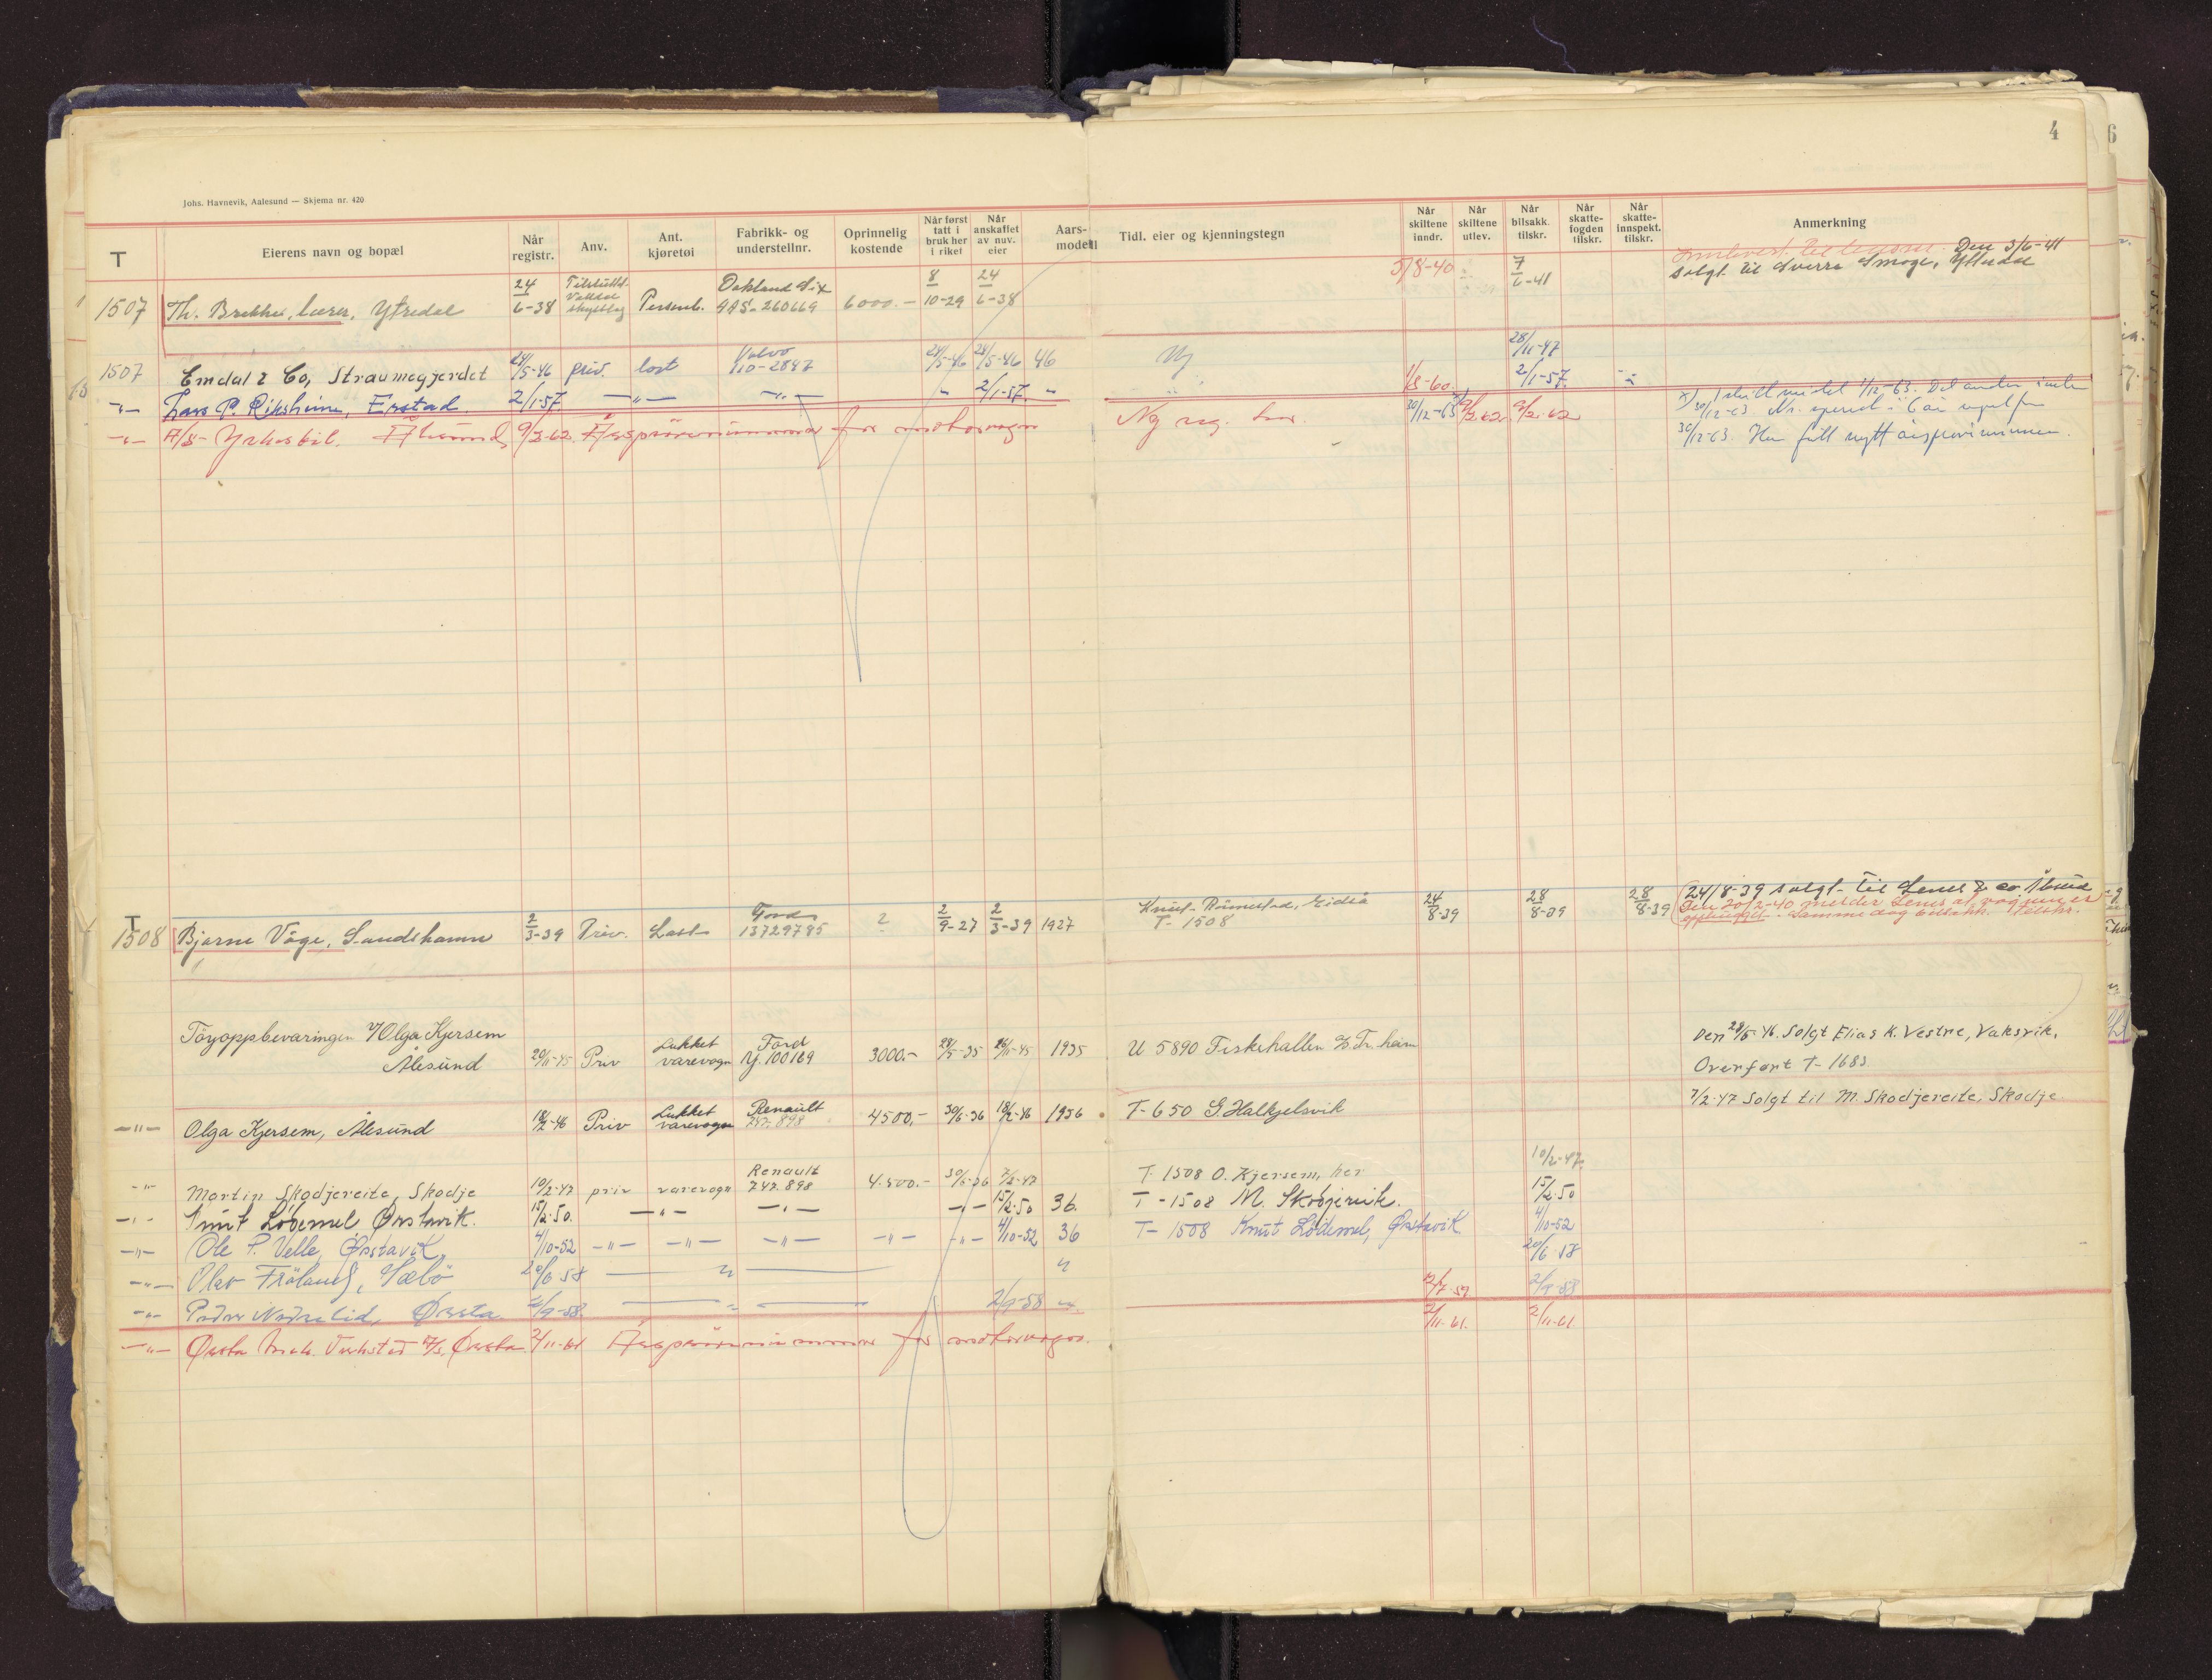 4
6
Johs. Havnevik, Aalesund — Skjema nr. 420
T
Eierens navn og bopæl
Når registr.
Anv.
Ant. kjøretøi
Fabrikk- og understellnr.
Oprinnelig kostende
Når først tatt i bruk her i riket
Når anskaffet av nuv. eier
Aars-modell
Tidl. eier og kjenningstegn
Når skiltene inndr.
Når skiltene utlev.
Når bilsakk. tilskr.
Når skatte-fogden tilskr.
Når skatte-innspekt. tilskr.
Anmerkning
1507 Th. Brekke, lærer, Ytredal 24/6-38 Personb. Oakland Six AAS-260669 6000.- 8/10-29 24/6-38 5/8-40 7/6-41 Den 3/6-41
solgt til Sverre Smoge,
1507 Emdal & Co, Straumegjerdet 24/5-46 priv. last Volvo 110-2847 24/5-46 24/5-46 46 Ny 28/11-47
-"- Lars P. Riksheim, Erstad 2/1-57 -"- -"- " 2/1-57 " 1/8-60 2/1-57
-"- A/S Yrkesbil. Ålesund, 9/2-62 Årsprøvenummer for motorvogn Ny reg. her. 30/12-63 9/2-62 9/2-62
30/12-63. Har fått nytt årsprøvenummer.
T
1508 Bjarne Våge, Sandshamn 2/3-39 Priv. Last Ford 13729795 ? 2/9-27 2/3-39 1927 Knut Rimestad, Eidså T-1508 24/8-39 28/8-39 28/8-39 24/8-39 solgt til Lenes & co Ålesund
Den 20/2-40 melder Lenes at vognen er
opphugget. Samme dag bilsakk. tilskr.
Töyoppbevaringen v/Olga Kjersem
Ålesund 20/11-45 Priv Lukket varevogn Ford Y.100169 3000.- 28/5-35 20/11-45 1935 U 5890 Fiskehallen A/S Tr.heim Den 28/5-46 Solgt Elias K. Vestre, Vaksvik.
Overført T-1683
7/2-47 Solgt til M. Skodjereite, Skodje
-"- Olga Kjersem, Ålesund 18/2-46 Priv Lukket varevogn Renault 747.898 4500,- 30/6-36 18/2-46 1936 T-650 G. Halkjelsvik
-"- Martin Skodjereite, Skodje 10/2-47 priv varevogn Renault 747.898 4.500.- 30/6-36 7/2-47 T-1508 O. Kjersem, her 10/2-47
-"- Knut Lødemel Ørstavik. 15/2-50. -"- -"- -"- 15/2-50 36. T-1508 M. Skodjereite. 15/2-50
-"- Ole P. Velle, Ørstavik, 4/10-52 -"- -"- -"- -"- -"- 4/10-52 36 T-1508 Knut Lødemel, Ørstavik 4/10-52
-"- Olav Fröland, Sæbö 20/6 58 " " 20/6-58
-"- Peder Nedrelid, Ørsta 2/9-58 " 2/9-58 " 2/9-58
-"- Ørsta Mek. Verksted A/S, Ørsta 2/11-61 Årsprøvenummer for motorvogn. 2/11-61. 2/11-61